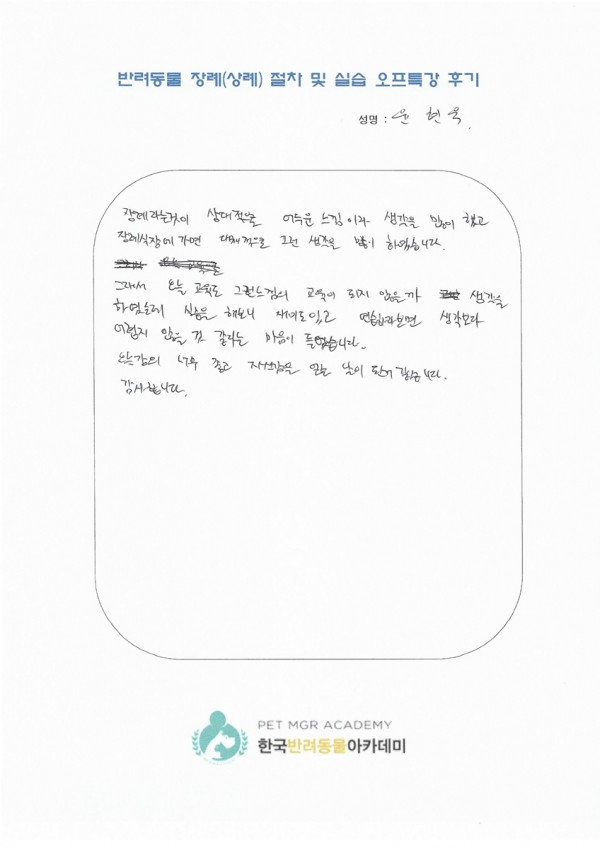 반려동물 장례(상례) 절차 및 실습 오프특강 후기
성명 : 윤 현욱.
장례라는것이 상대적으로 어두운 느낌이라 생각을 많이 했고
장례식장에 가면 대체적으로 그런 생각을 많이 하였습니다.
그래서 오늘 교육도 그런느낌의 교육이 되지 않을까 생각을
하였는데 실습을 해보니 재미도있고 연습하다보면 생각보다
어렵지 않을 것 같다는 마음이 들었습니다.
오늘강의 너무 좋고 자신감을 얻은 날이 된거 같습니다.
감사합니다.
PET MGR ACADEMY
한국반려동물아카데미